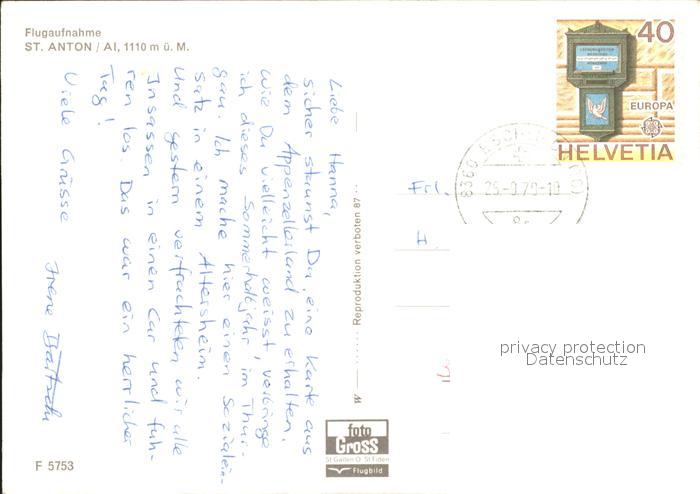 Flugaufnahme
ST. ANTON / AI, 1110 m ü. M.
Liebe Hanna,
sicher staunst Du, eine Karte aus
dem Appenzellerland zu erhalten.
Wie Du vielleicht weisst, verbringe
ich dieses Sommerhalbjahr im Thur-
gau. Ich mache hier einen Sozialein-
satz in einem Altersheim.
Und gestern verfrachteten wir alle
Insassen in einen Car und fuh-
ren los. Das war ein herrlicher
Tag!
Viele Grüsse
Irene
F 5753
Reproduktion verboten 87
foto
Gross
St Gallen O St Fiden
Flugbild
40
EUROPA
HELVETIA
Frl.
H.
privacy protection
Datenschutz